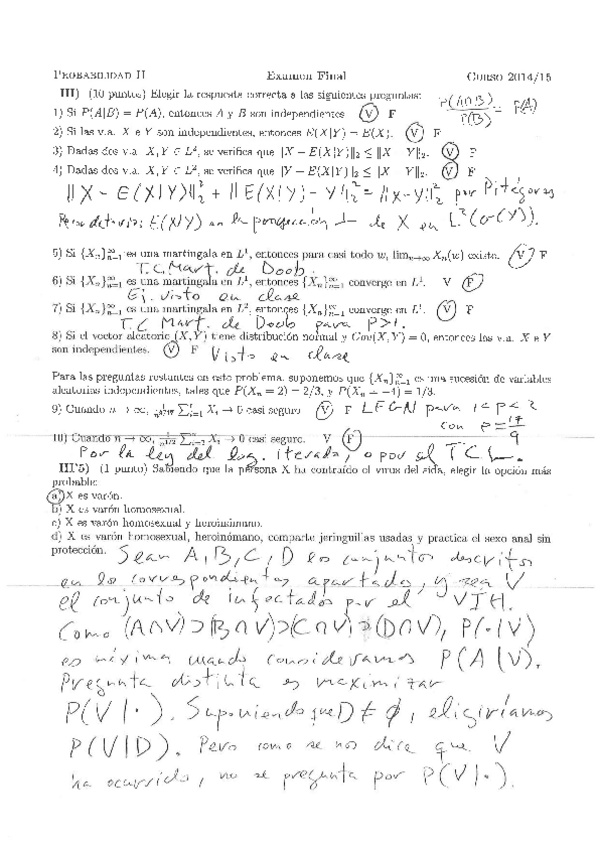 PROBABILIDAD II Examen Final CURSO 2014/15
III) (10 puntos) Elegir la respuesta correcta a las siguientes preguntas:
1) Si P(A|B) = P(A), entonces A y B son independientes. V F P(A∩B)/P(B) = P(A)
2) Si las v.a. X e Y son independientes, entonces E(X|Y) = E(X). V F
3) Dadas dos v.a. X, Y ∈ L², se verifica que ||X − E(X|Y)||₂ ≤ ||X − Y||₂. V F
4) Dadas dos v.a. X, Y ∈ L², se verifica que ||Y − E(X|Y)||₂ ≤ ||X − Y||₂. V F
||X − E(X|Y)||₂² + ||E(X|Y) − Y||₂² = ||X−Y||₂² por Pitágoras
E(X|Y) es la proyección ⊥ de X en L²(σ(Y)).
5) Si {Xₙ}ₙ₌₁^∞ es una martingala en L¹, entonces para casi todo w, limₙ→∞ Xₙ(w) existe. V F
T.C. Mart. de Doob.
6) Si {Xₙ}ₙ₌₁^∞ es una martingala en L¹, entonces {Xₙ}ₙ₌₁^∞ converge en L¹. V F
Ej. visto en clase
7) Si {Xₙ}ₙ₌₁^∞ es una martingala en L², entonces {Xₙ}ₙ₌₁^∞ converge en L¹. V F
T.C. Mart. de Doob para p>1.
8) Si el vector aleatorio (X, Y) tiene distribución normal y Cov(X, Y) = 0, entonces las v.a. X e Y
son independientes. V F Visto en clase
Para las preguntas restantes en este problema, suponemos que {Xₙ}ₙ₌₁^∞ es una sucesión de variables
aleatorias independientes, tales que P(Xₙ = 2) = 2/3, y P(Xₙ = −4) = 1/3.
9) Cuando n → ∞, Xᵢ → 0 casi seguro V F LFGN para 1<p<2
con p = 17/9
10) Cuando n → ∞, 1/n^{1/2} Xᵢ → 0 casi seguro. V F
Por la ley del log. iterado, o por el TCL.
III'5) (1 punto) Sabiendo que la persona X ha contraído el virus del sida, elegir la opción más
probable:
a) X es varón.
b) X es varón homosexual.
c) X es varón homosexual y heroinómano.
d) X es varón homosexual, heroinómano, comparte jeringuillas usadas y practica el sexo anal sin
protección.
Sean A, B, C, D los conjuntos descritos
en los correspondientes apartados, y sea V
el conjunto de infectados por el VIH.
Como (A∩V)⊃(B∩V)⊃(C∩V)⊃(D∩V), P(·|V)
es máxima cuando consideramos P(A|V).
Pregunta distinta es maximizar
P(V|·). Suponiendo que D ≠ ∅, eligiríamos
P(V|D). Pero como se nos dice que V
ha ocurrido, no se pregunta por P(V|·).